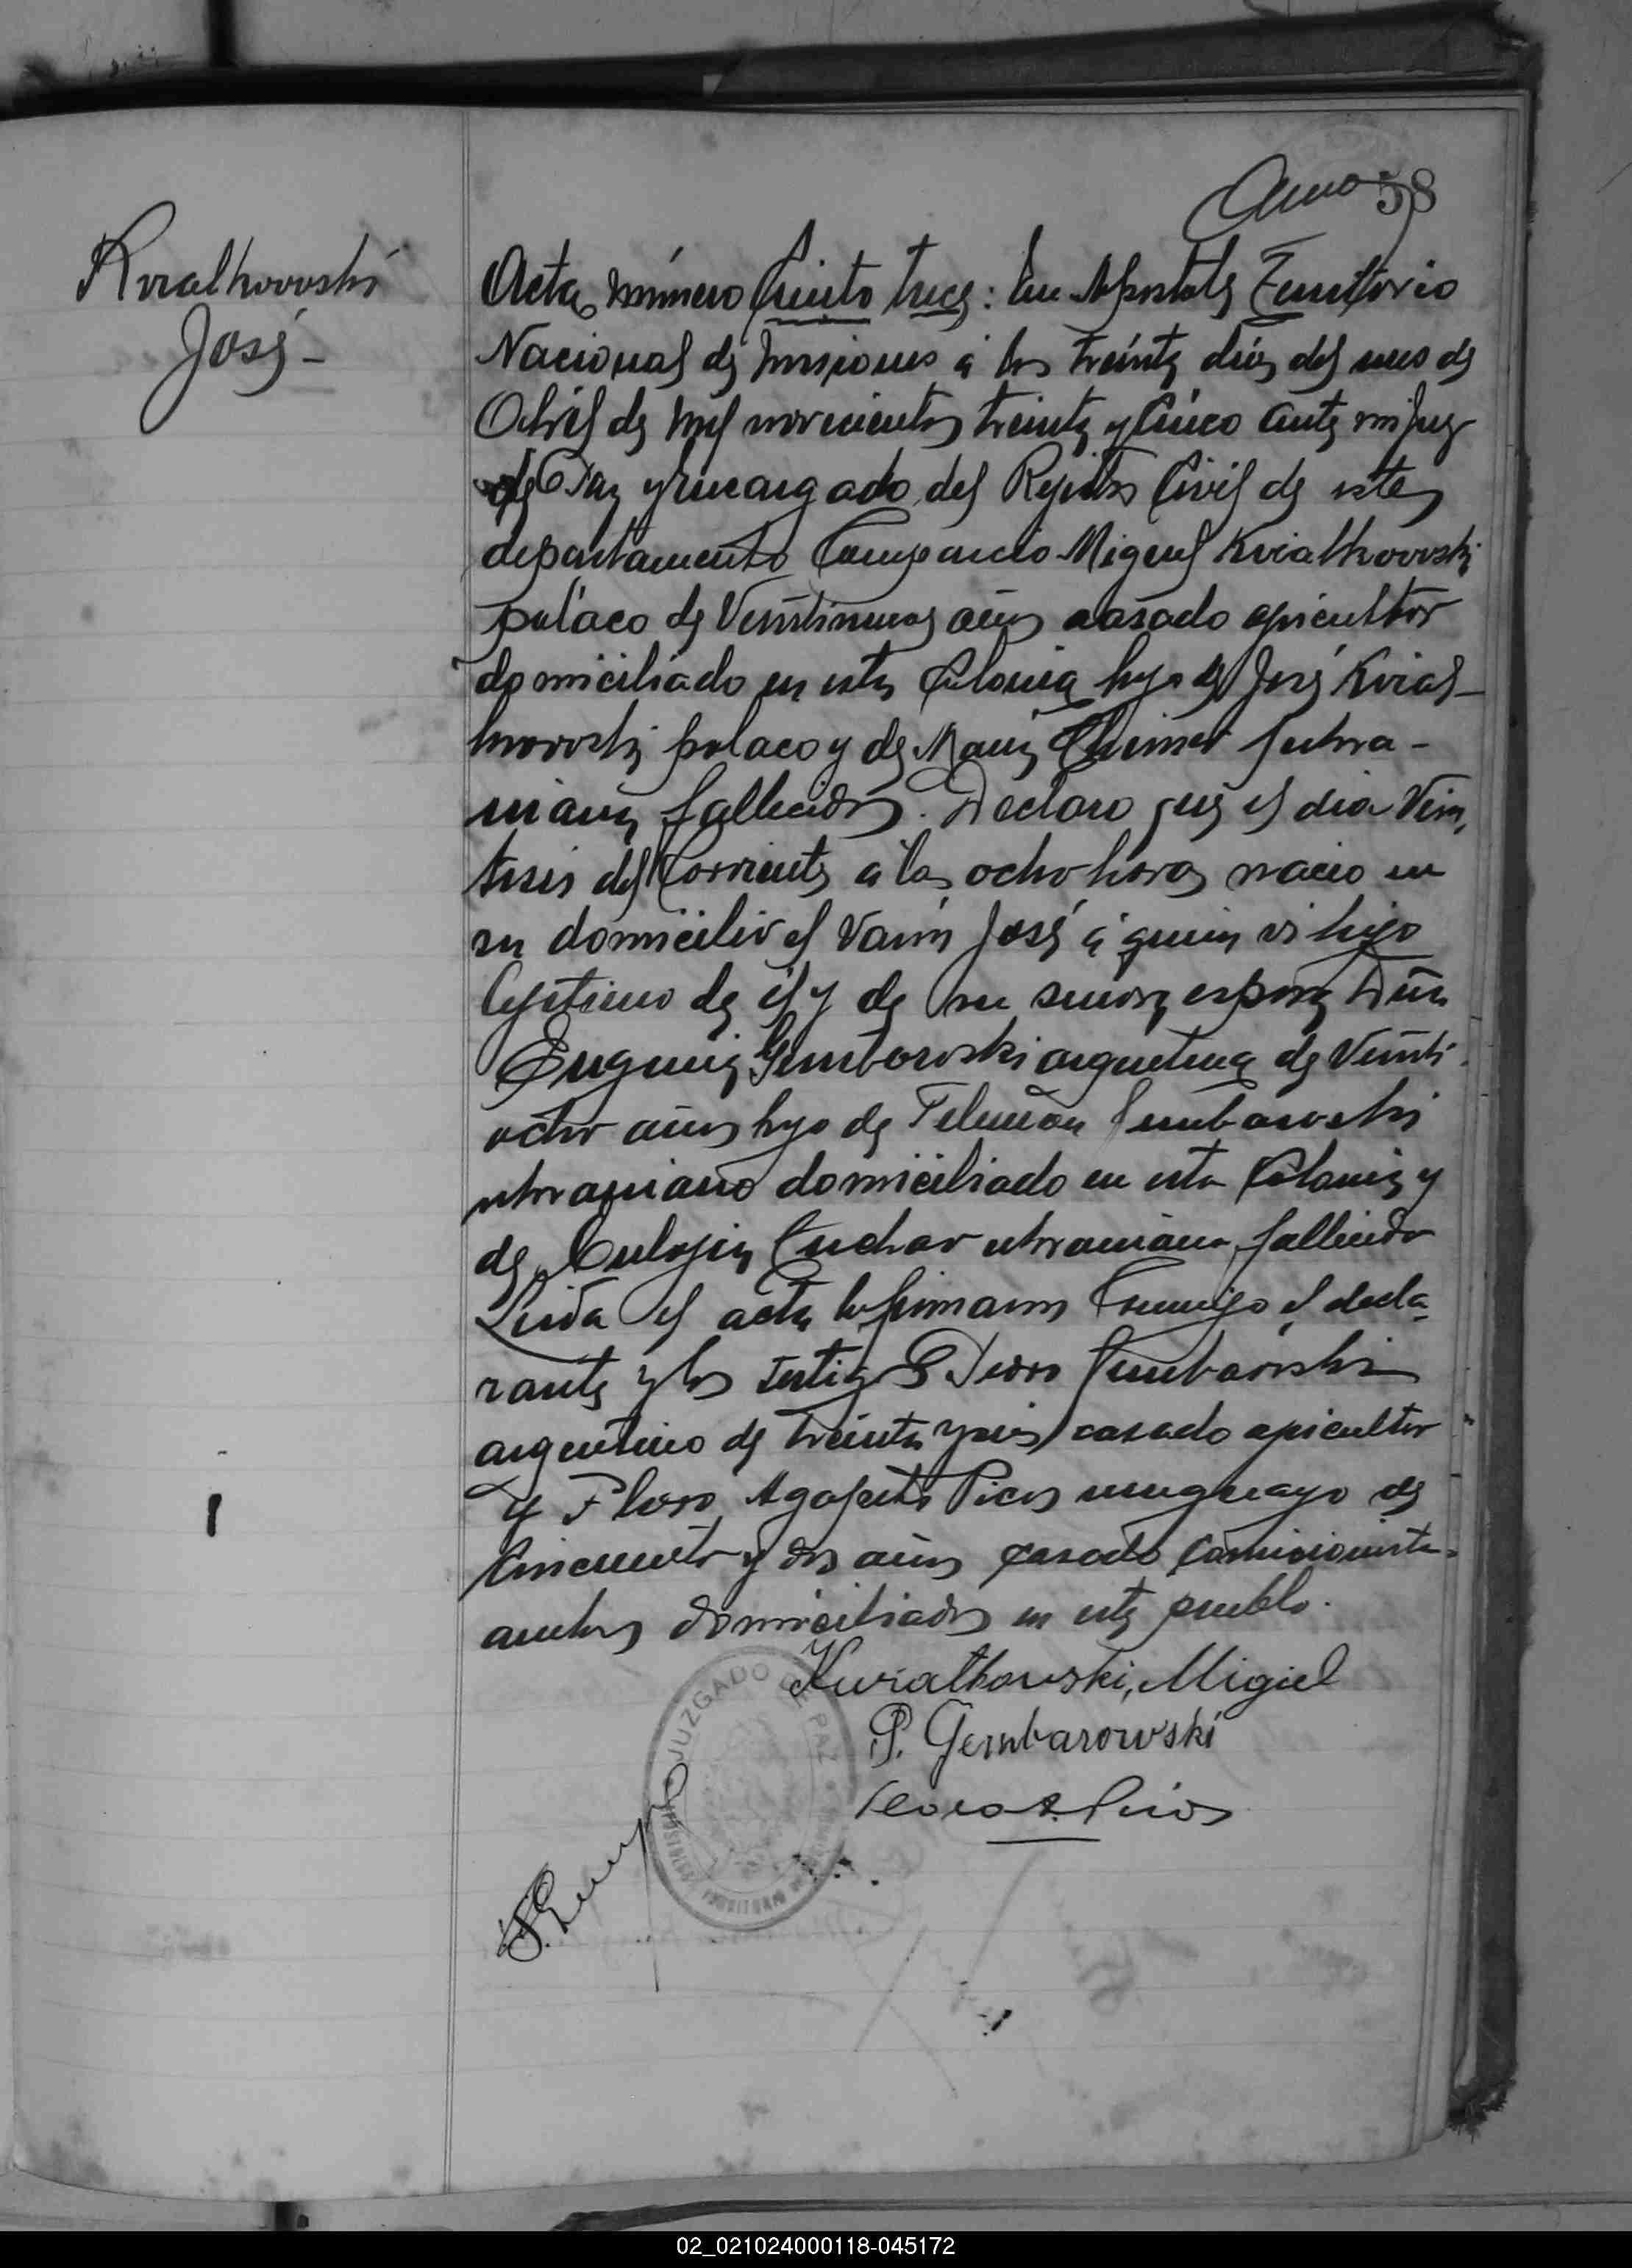 58
Kvialkovoski
José-
Acta número Ciento trece: En Apostoles Territorio
Nacional de Misiones á los treinta dias del mes de
Abril de mil novecientos treinta y cinco ante mi Juez
de Paz y Encargado del Rejistro Civil de este
departamento Comparecio Miguel Kvialkovoski
polaco de Veintinueve años casado agricultor
domiciliado en esta Colonia hijo de José Kvial-
kovoski polaco y de Maria ukra-
niana fallecidos. Declaro que el dia Vein-
tiseis del Corriente á las ocho horas nacio en
su domicilio el Varon José á quien vi hijo
lejitimo de el y de su señora esposa Doña
Eugenia Gembarovski argentina de Veinti-
ocho años hija de Gembarovski
ukraniano domiciliado en esta Colonia y
de Eulojia Cuchar ukraniana fallecida
Leida el acta la firmaron Conmigo el decla-
rante y los testigos Pedro Gembarovski
argentino de treinta y seis casado agricultor
y Floro Agapito Picos uruguayo de
Cincuenta y dos años casado Comisionista
ambos domiciliados en este pueblo.
Kwiatkowski, Migiel
P. Gembarowski
Floro A. Picos
JUZGADO DE PAZ
02_021024000118-045172